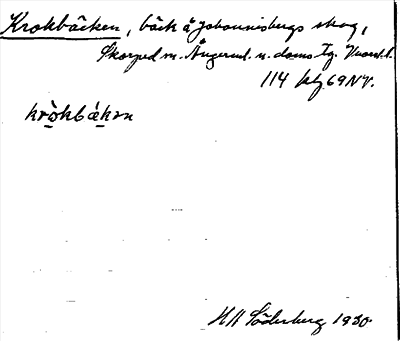 Krokbäcken, bäck å Johannisbergs skog,
Skorped m. Ångerml. n. doms. Tg.
114 kbl 69 NV.
kròkbäkən
H Söderberg 1930.